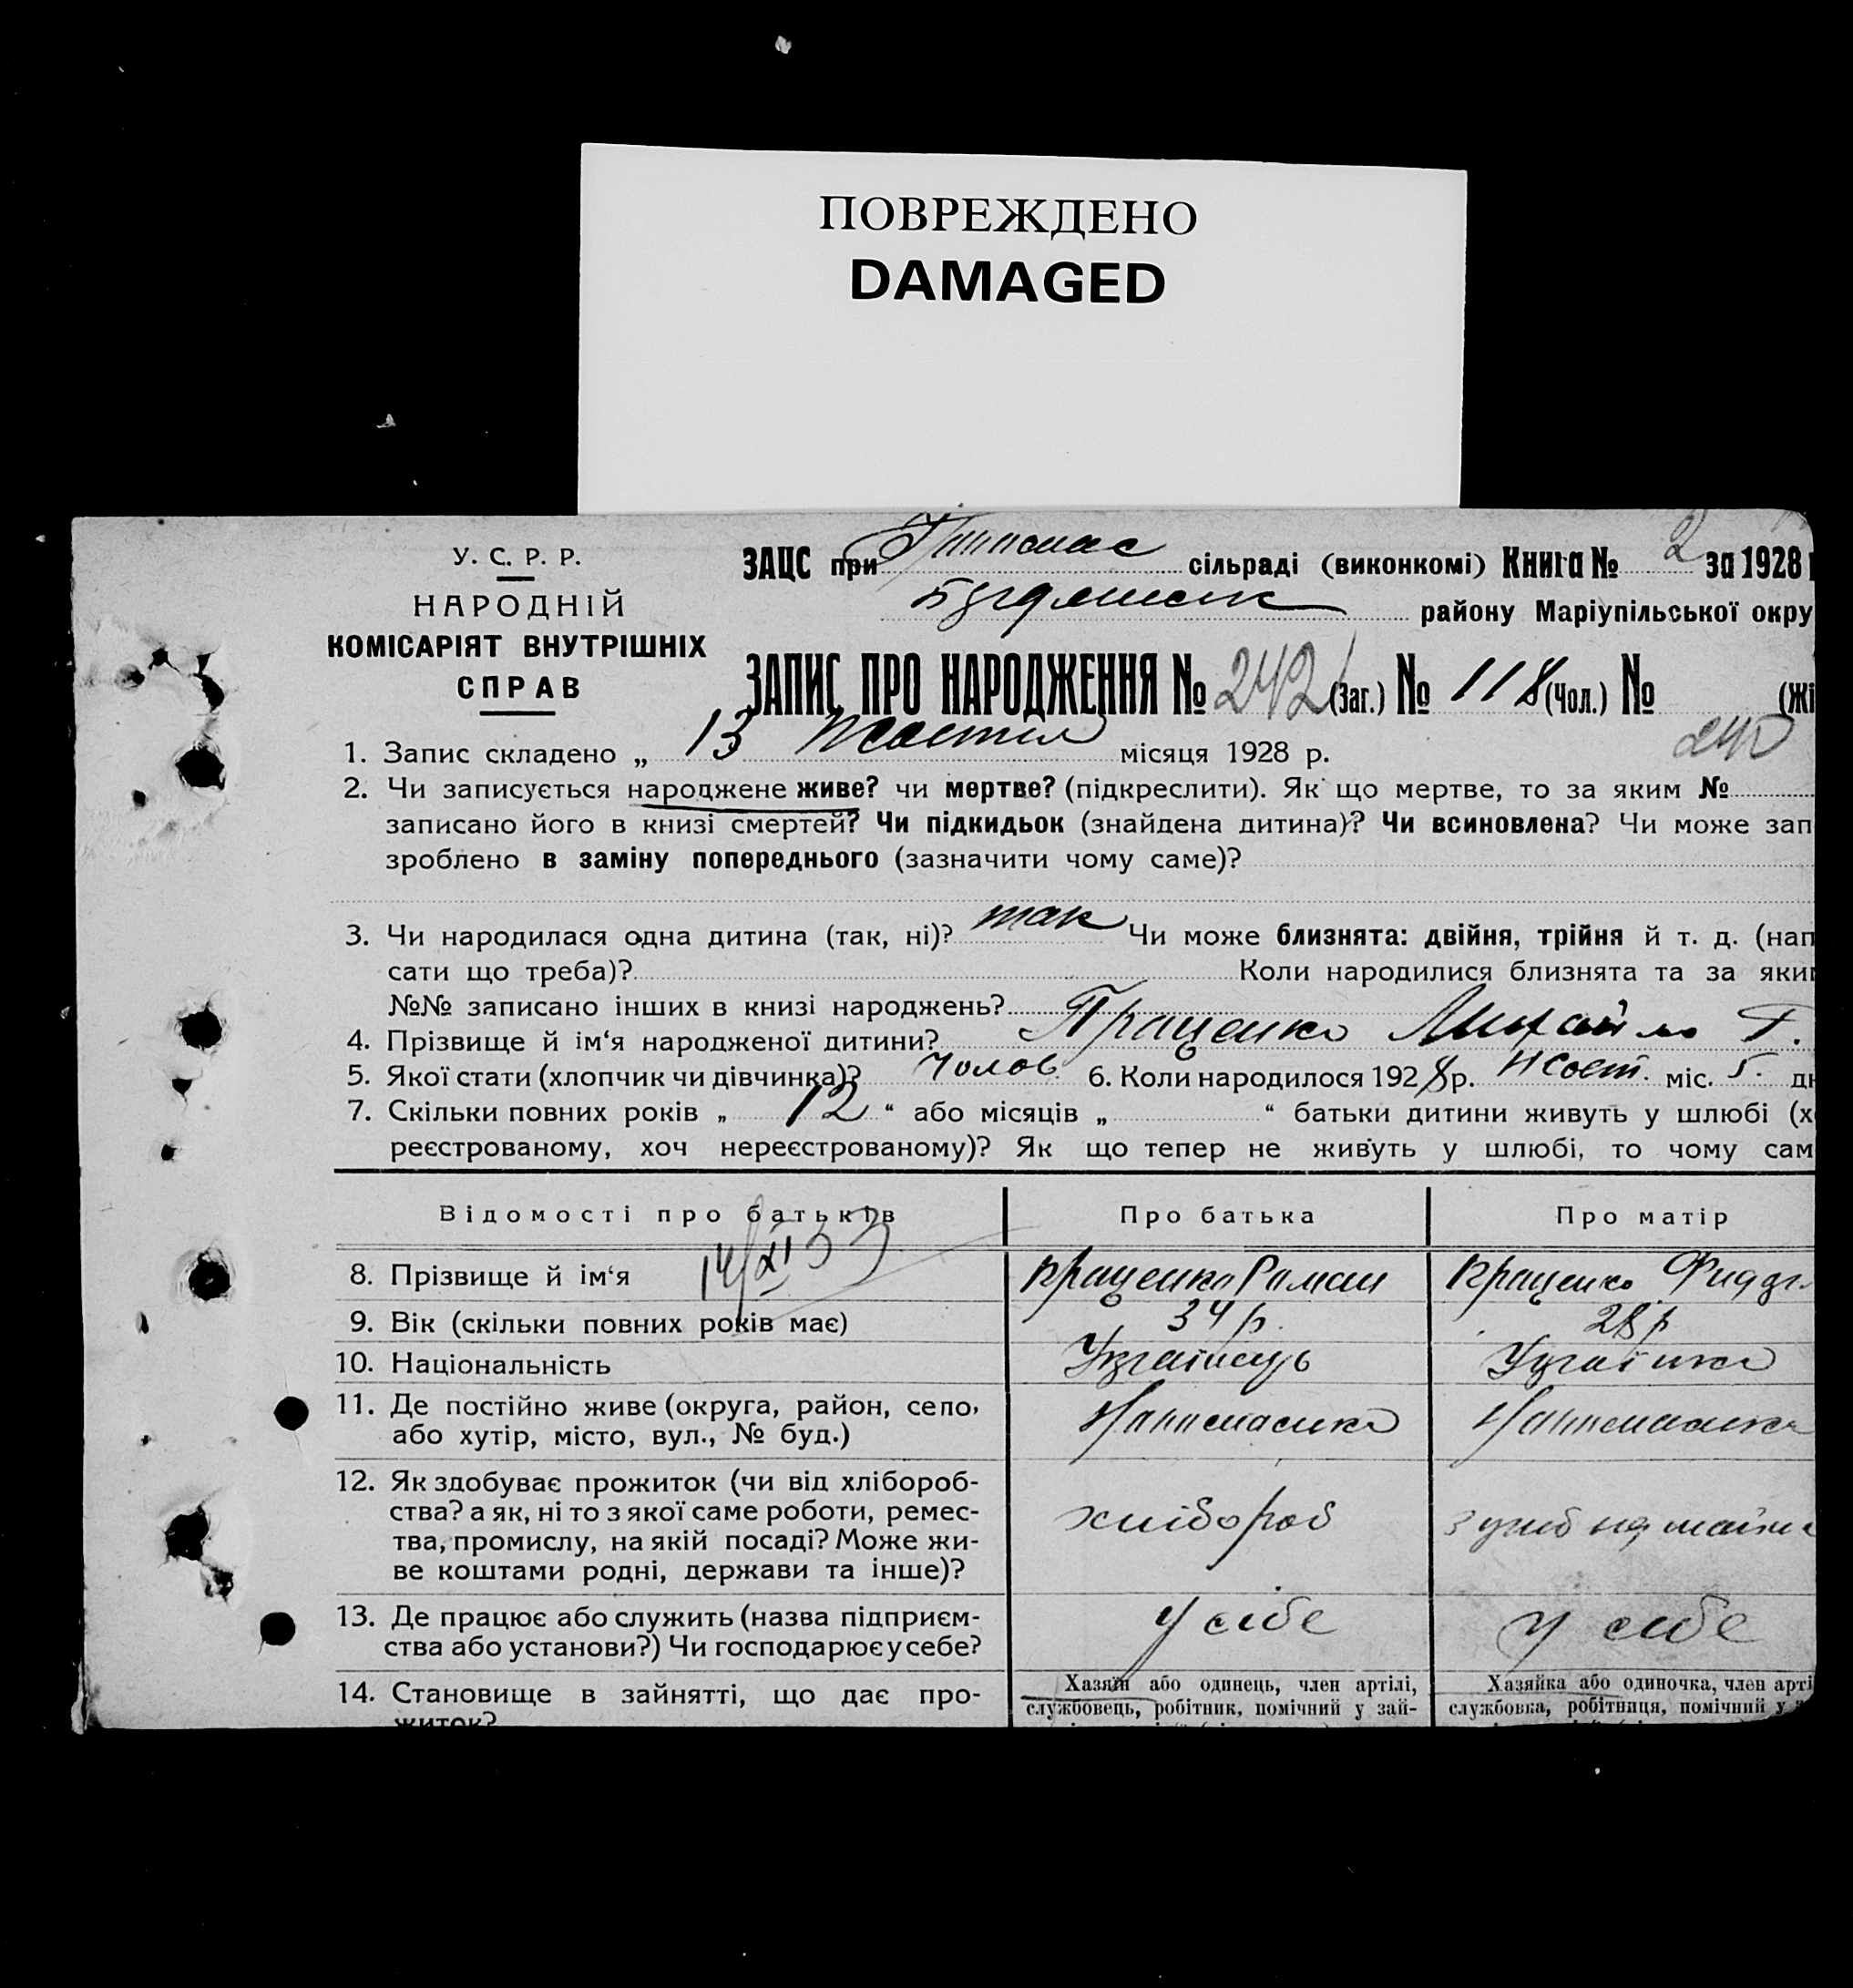 ПОВРЕЖДЕНО
DAMAGED
У. С. Р. Р.
НАРОДНІЙ
КОМІСАРІЯТ ВНУТРІШНІХ
СПРАВ
ЗАЦС при сільраді (виконкомі) Книга № 2 за 1928
району Маріупільської окру
ЗАПИС ПРО НАРОДЖЕННЯ № 242 (Заг.) № 118 (Чол.) № (Жі
240
1. Запис складено „ 13 Жовтня місяця 1928 р.
2. Чи записується народжене живе? чи мертве? (підкреслити). Як що мертве, то за яким №
записано його в книзі смертей? Чи підкидьок (знайдена дитина)? Чи всиновлена? Чи може зап
зроблено в заміну попереднього (зазначити чому саме)?
3. Чи народилася одна дитина (так, ні)? так Чи може близнята: двійня, трійня й т. д. (нап
сати що треба)? Коли народилися близнята та за яки
№№ записано інших в книзі народжень?
4. Прізвище й ім‘я народженої дитини? Михайло
5. Якої стати (хлопчик чи дівчинка)? Чолов. 6. Коли народилося 1928 р. Жовт. міс. 5. дн
7. Скільки повних років „ 12 “ або місяців „ “ батьки дитини живуть у шлюбі (х
реєстрованому, хоч нереєстрованому)? Як що тепер не живуть у шлюбі, то чому сам
Відомості про батьків Про батька Про матір
14/XI 33
8. Прізвище й ім‘я Кращенко Роман Кращенко
9. Вік (скільки повних років має) 34 р. 28 р
10. Національність Українець Українка
11. Де постійно живе (округа, район, село,
або хутір, місто, вул., № буд.)
12. Як здобуває прожиток (чи від хлібороб-
ства? а як, ні то з якої саме роботи, ремес-
тва, промислу, на якій посаді? Може жи-
ве коштами родні, держави та інше)?
хлібороб
13. Де працює або служить (назва підприєм-
ства або установи?) Чи господарює у себе?
у себе у себе
14. Становище в зайнятті, що дає про-
житок?
Хазяїн або одинець, член артілі,
службовець, робітник, помічний у зай-
Хазяйка або одиночка, член арті
службовка, робітниця, помічний у з